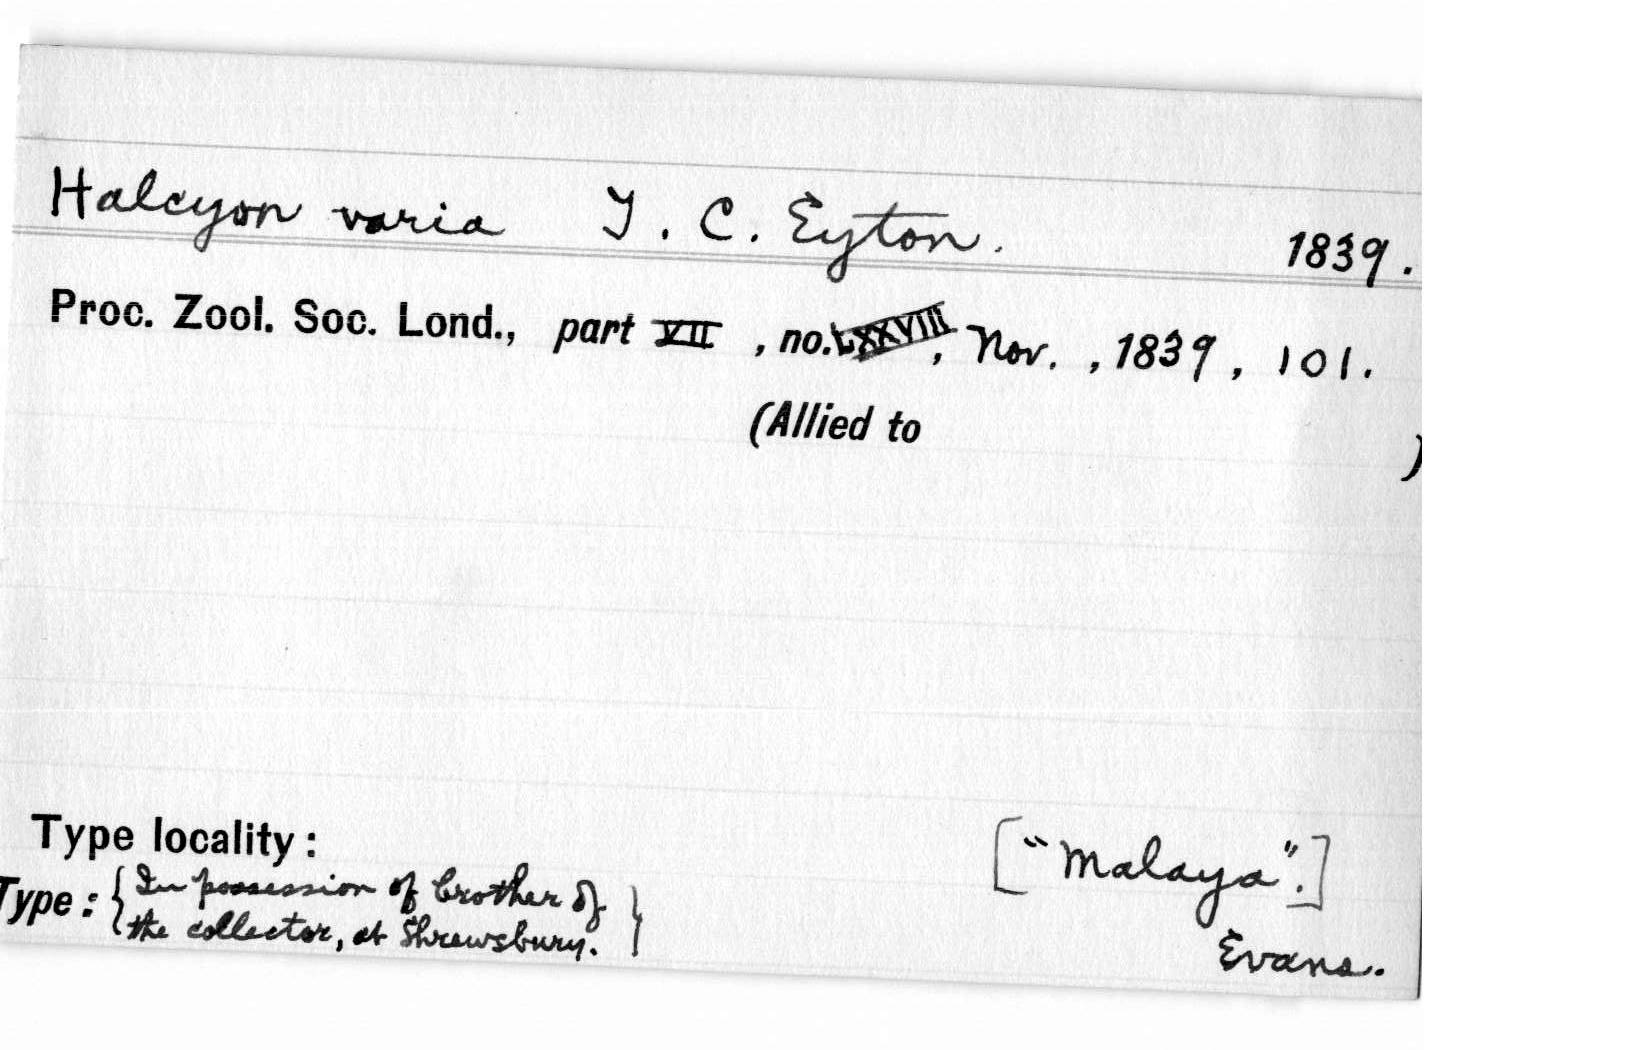 Halcyon varia T. C. Eyton. 1839.
Proc. Zool. Soc. Lond., part VII , no. LXXVIII, Nov. , 1839 , 101.
(Allied to )
Type locality : ["Malaya".]
Type : {In possession of brother of
the collector, at Shrewsbury.}
Evans.